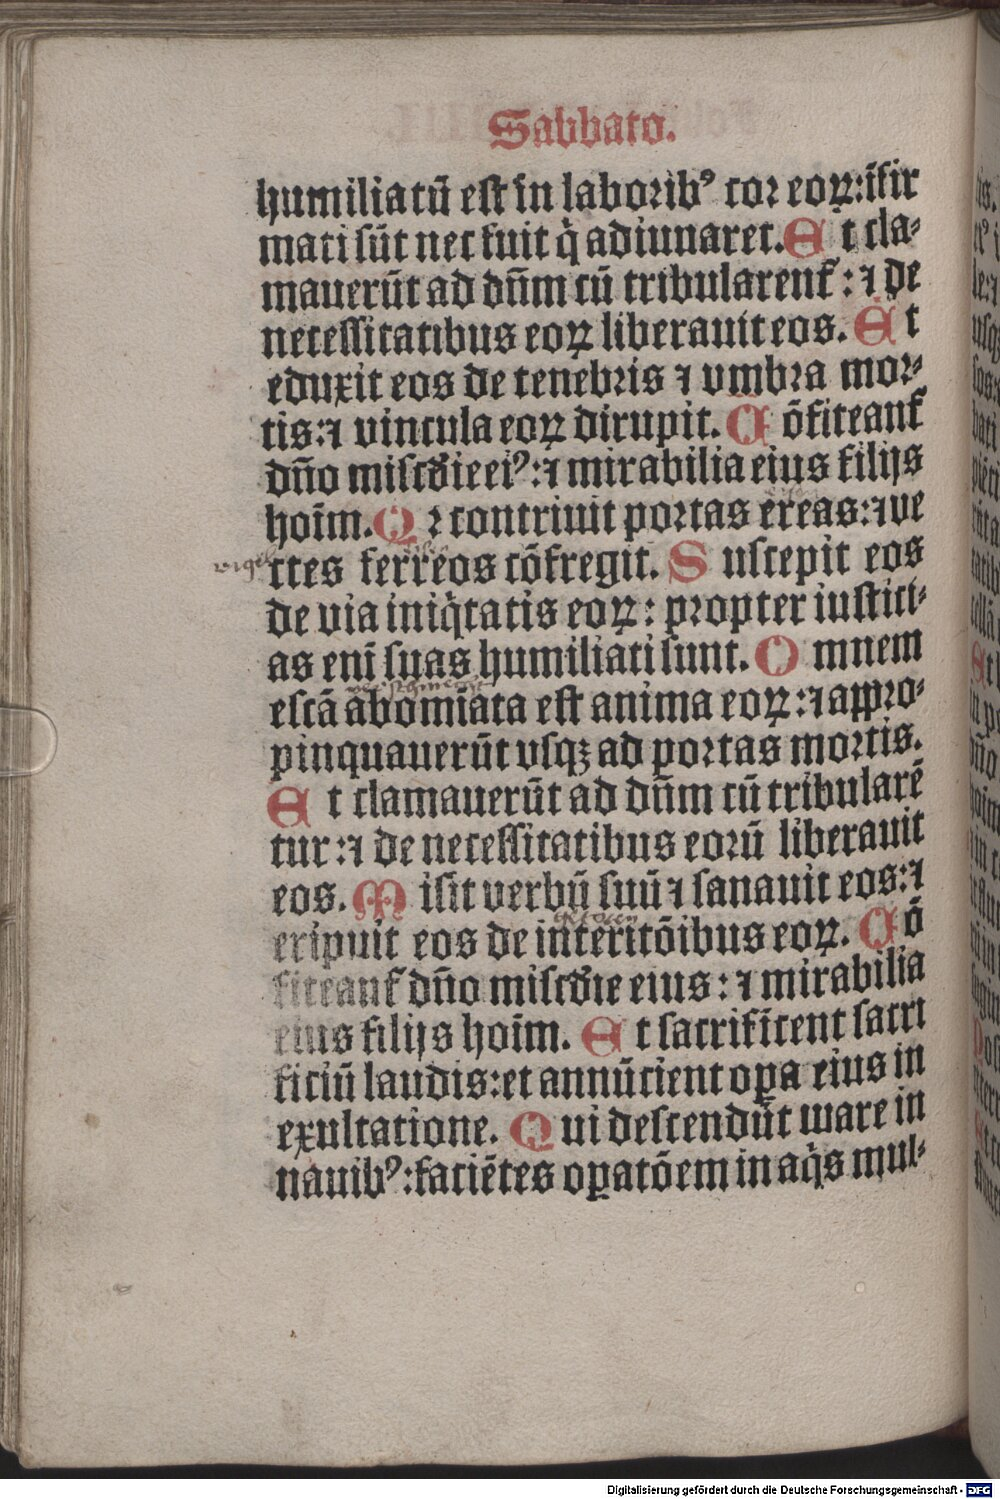 Sabbato.
humiliatū est in laborib⁹ cor eoꝝ: ĩfir
mati sūt nec fuit q̇ adiuuaret. Et cla⸗
mauerūt ad dñm cū tribularent᷑: ⁊ de
necessitatibus eoꝝ liberauit eos. Et
eduxit eos de tenebris ⁊ vmbra mor⸗
tis: ⁊ vincula eoꝝ dirupit. Cōfiteant᷑
dño miscd̕ie ei⁹: ⁊ mirabilia eius filijs
hoīm. Qꝛ contriuit portas ereas: ⁊ ve
ctes ferreos cōfregit. Suscepit eos
de via iniq̇tatis eoꝝ: propter iustici⸗
as enī suas humiliati sunt. Omnem
escā abomīata est anima eoꝝ: ⁊ appro⸗
pinquauerūt vsqꝫ ad portas mortis.
Et clamauerūt ad dñm cū tribularē
tur: ⁊ de necessitatibus eorū liberauit
eos. Misit verbū suū ⁊ sanauit eos: ⁊
eripuit eos de interitōibus eoꝝ. Cō
fiteant᷑ dño miscd̕ie eius: ⁊ mirabilia
eius filijs hoīm. Et sacrificent sacri
ficiū laudis: et annūcient oꝑa eius in
exultatione. Qui descendūt mare in
nauib⁹: faciētes oꝑatōem in aq̇s mul⸗
Digitalisierung gefördert durch die Deutsche Forschungsgemeinschaft - DFG